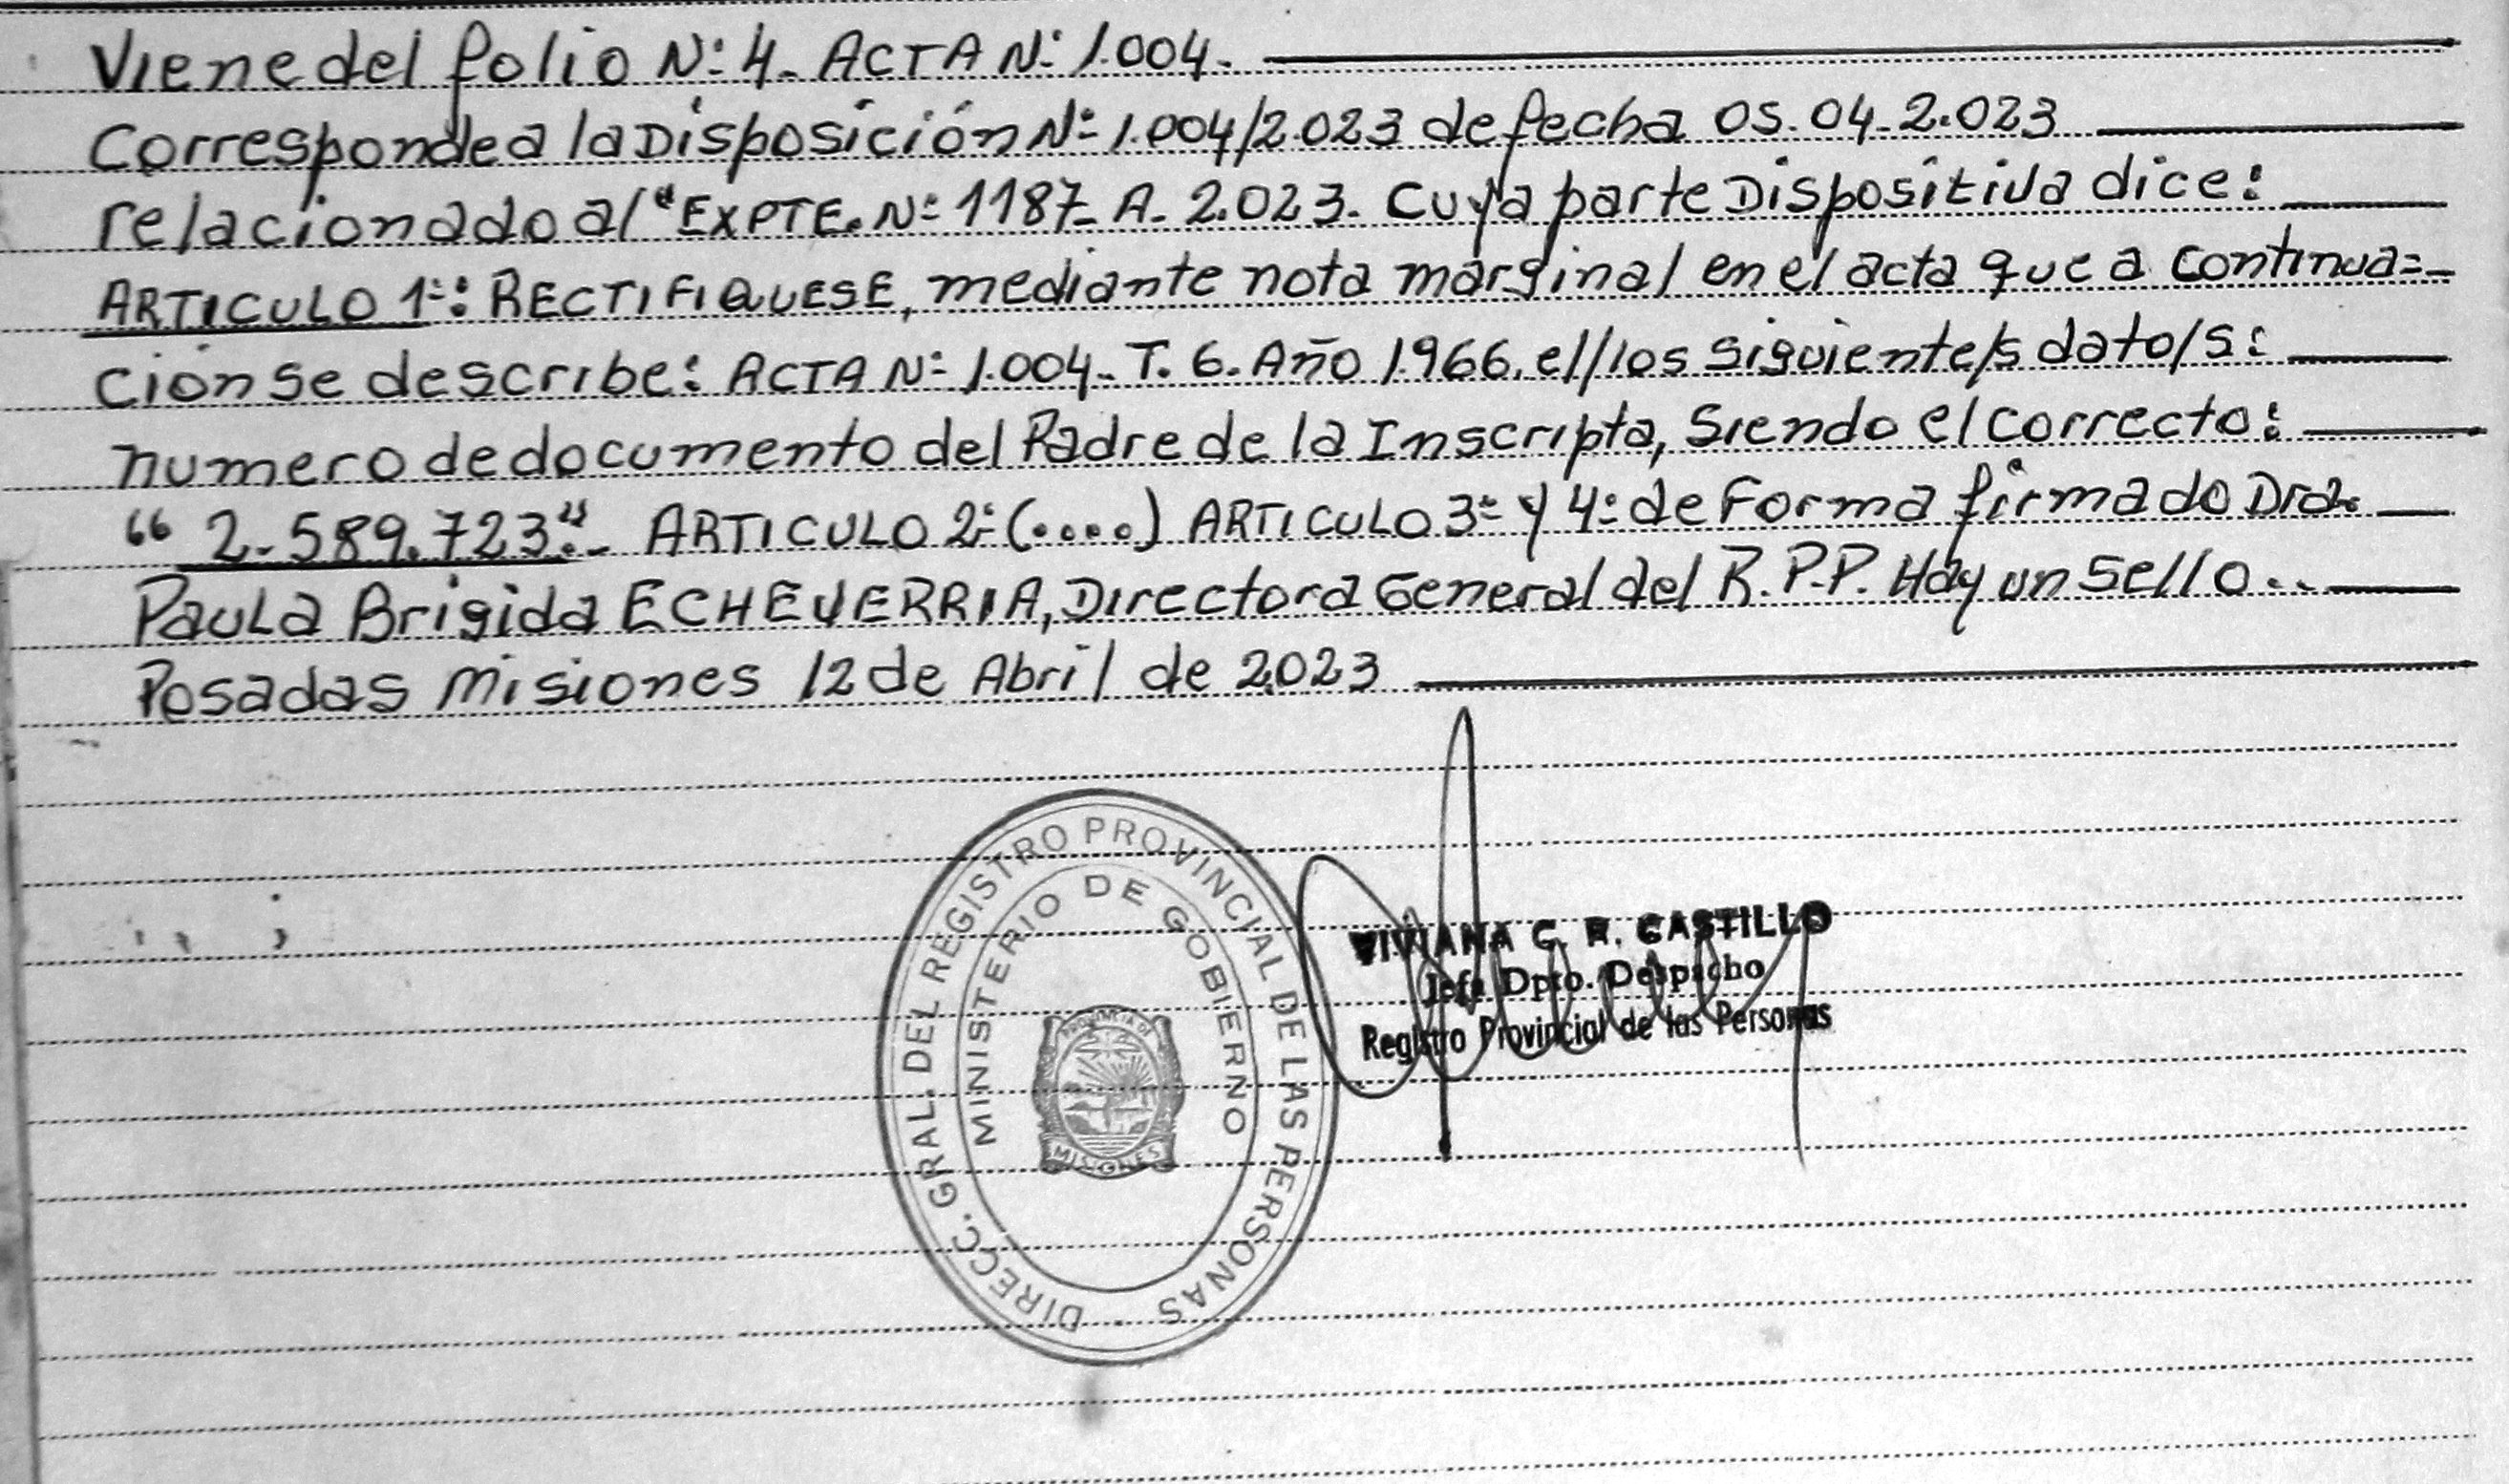 Viene del folio N: 4. ACTA N: 1.004.
Corresponde a la Disposición N: 1.004/2.023 de fecha 05.04.2.023
relacionado al "EXPTE. N: 1187. A. 2.023. Cuya parte Dispositiva dice:
ARTICULO 1:: RECTIFIQUESE, mediante nota marginal en el acta que a continua=
ción se describe: ACTA N: 1.004. T. 6. Año 1.966. el/los siguiente/s dato/s:
numero de documento del Padre de la Inscripta, Siendo el correcto:
" 2.589.723". ARTICULO 2: (....) ARTICULO 3: y 4: de Forma firmado Dra.
Paula Brigida ECHEVERRIA, Directora General del R.P.P. Hay un Sello..
Posadas Misiones 12 de Abril de 2.023
DIRECC. GRAL. DEL REGISTRO PROVINCIAL DE LAS PERSONAS
MINISTERIO DE GOBIERNO
PROVINCIA DE
MISIONES
VIVIANA C. R. CASTILLO
Jefe Dpto. Despacho
Registro Provincial de las Personas